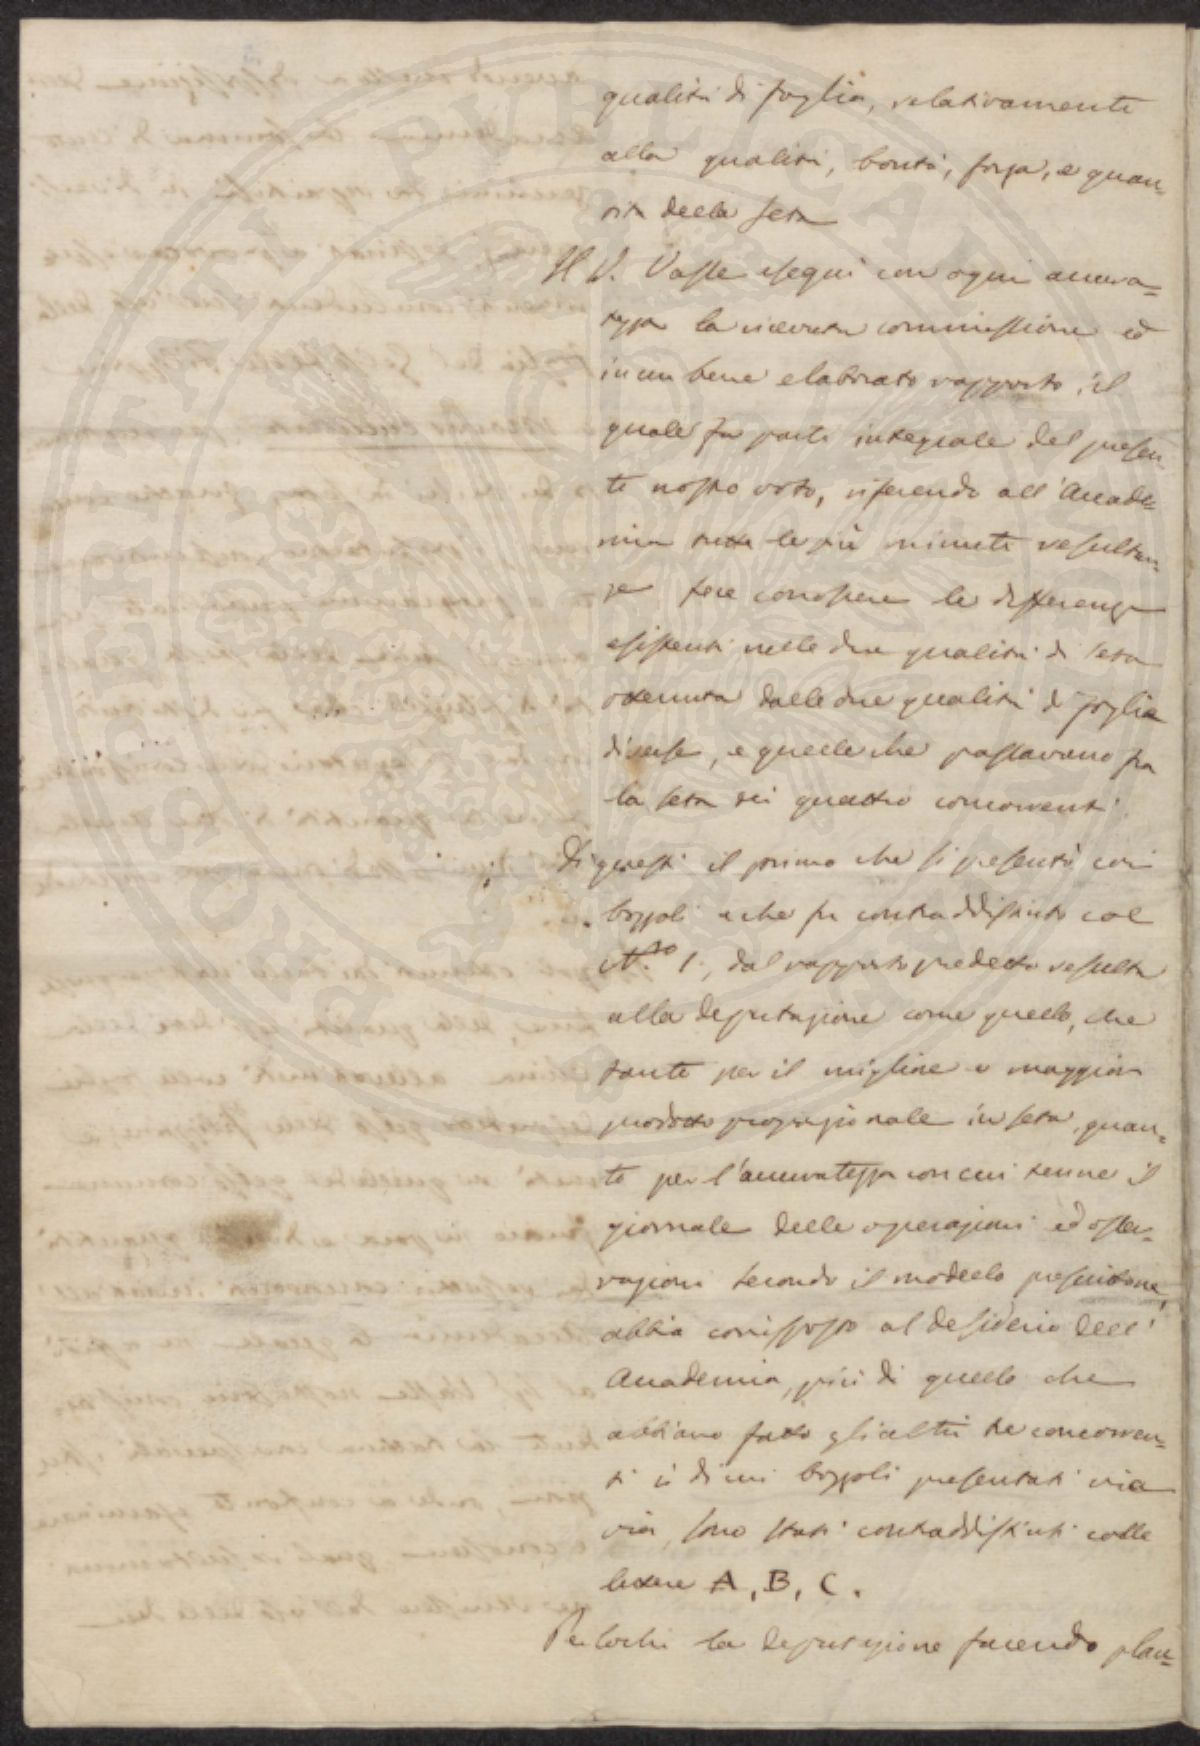 qualità di foglia, relativamente
alla qualità, bontà, forza, e quan=
tità della seta
Il S. Vasse eseguì con ogni accura=
tezza la ricevuta commissione ed
in un bene elaborato rapporto, il
quale fa parte integrale del presen=
te nostro voto, riferendo all'Accade=
mia tutte le più minute resultan=
ze fece conoscere le differenze
esistenti nelle due qualità di seta
ottenuta dalle due qualità di foglia
diverse, e quelle che passavano fra
la seta dei quattro concorrenti.
Di questi il primo che si presentò coi
bozzoli e che fu contraddistinto col
N.ro 1., dal rapporto predetto resulta
alla deputazione come quello, che
tante per il migliore e maggiore
prodotto proporzionale in seta, quan=
to per l'accuratezza con cui tenne il
giornale delle operazioni ed osser=
vazioni secondo il modello prescrittone,
abbia corrisposto al desiderio dell'
Accademia, più di quello che
abbiano fatto gli altri tre concorren=
ti i di cui bozzoli presentati via
via, sono stati contraddistinti colle
lettere A, B, C.
Perlochè la deputazione facendo plau=